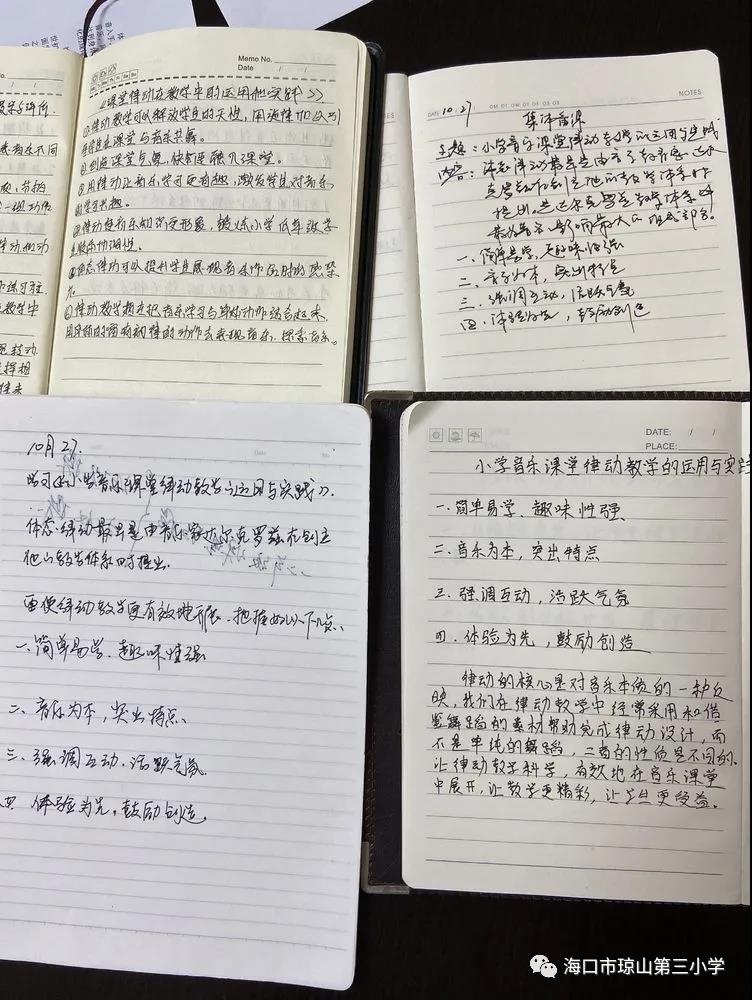 Memo No.
Date / /
《课堂律动在教学中的运用和实践》
①律动教学可以解放学生的天性，用流性加以引
导学生在课堂与音乐共舞。
②创造课堂气氛，使师生融入课堂。
③用律动让音乐学习更有趣，激发学生对音乐
的学习兴趣。
④律动使音乐知识变形象，锻炼小学低年级学
生肢体协调性。
⑤体态律动可以提升学生展现音乐作品时的感染
力。
⑥律动教学想法把音乐学习与身体动作结合起来，
用身体的富有韵律的动作去表现音乐、探索音乐。
DATE 10.27
NOTES
集体备课
主题：小学音乐课堂律动教学的运用与实践
内容：体态律动最早是由音乐教育家达尔
克罗兹在创立他的教学体系时
提出
一、简单易学，趣味性强
二、音乐为本，突出特点
三、强调互动，活跃气氛
四、体验为先，鼓励创造
10月27.
学习《小学音乐课堂律动教学的运用与实践》.
体态律动最早是由音乐家达尔克罗兹在创立
他的教学体系时提出.
要使律动教学更有效地开展、把握好以下几点:
一、简单易学、趣味性强
二、音乐为本，突出特点
三、强调互动、活跃气氛
四、体验为先，鼓励创造。
DATE: / /
PLACE:
小学音乐课堂律动教学的运用与实践
一、简单易学、趣味性强
二、音乐为本，突出特点
三、强调互动，活跃气氛
四、体验为先，鼓励创造
律动的核心是对音乐本质的一种反
映，我们在律动教学中经常采用和借
鉴舞蹈的素材帮助完成律动设计，而
不是单纯的舞蹈，二者的性质是不同的.
让律动教学科学，有效地在音乐课堂
中展开，让教学更精彩，让学生更受益。
海口市琼山第三小学